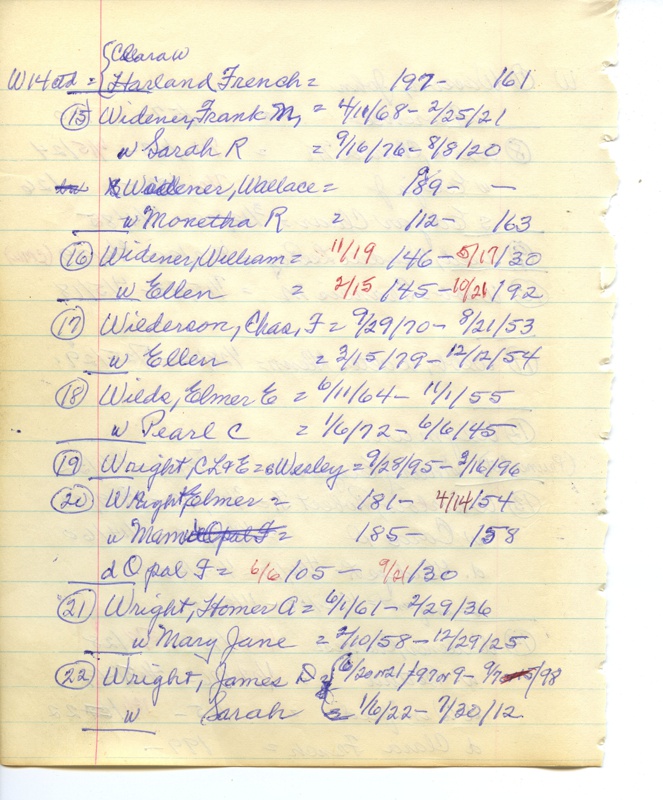 Clara W
W14ctd = Harland French = /97- /61
(15) Widener, Frank M, = 4/11/68- 2/25/21
w Sarah R = 9/16/76- 8/8/20
S Widener, Wallace = /89- -
w Monetha R = /12- /63
(16) Widener, William = 11/19 /46- 5/17/30
w Ellen = 2/15 /45- 10/21/92
(17) Wilderson, Chas, F = 9/29/70- 8/21/53
w Ellen = 2/15/79- 12/12/54
(18) Wilds, Elmer E = 6/11/64- 11/1/55
w Pearl C = 1/6/72- 6/6/45
(19) Wright, CL & E = s Wesley = 9/28/95- 3/16/96
(20) Wright Elmer = /81- 4/14/54
w Mamie Opal F = /85- /58
d Opal F = 6/6/05 - 9/21/30
(21) Wright, Homer A = 6/1/61- 2/29/36
w Mary Jane = 2/10/58- 12/29/25
(22) Wright, James D = 6/20 or 21/97 or 9- 9/7/98
w Sarah = 1/6/22- 7/30/12